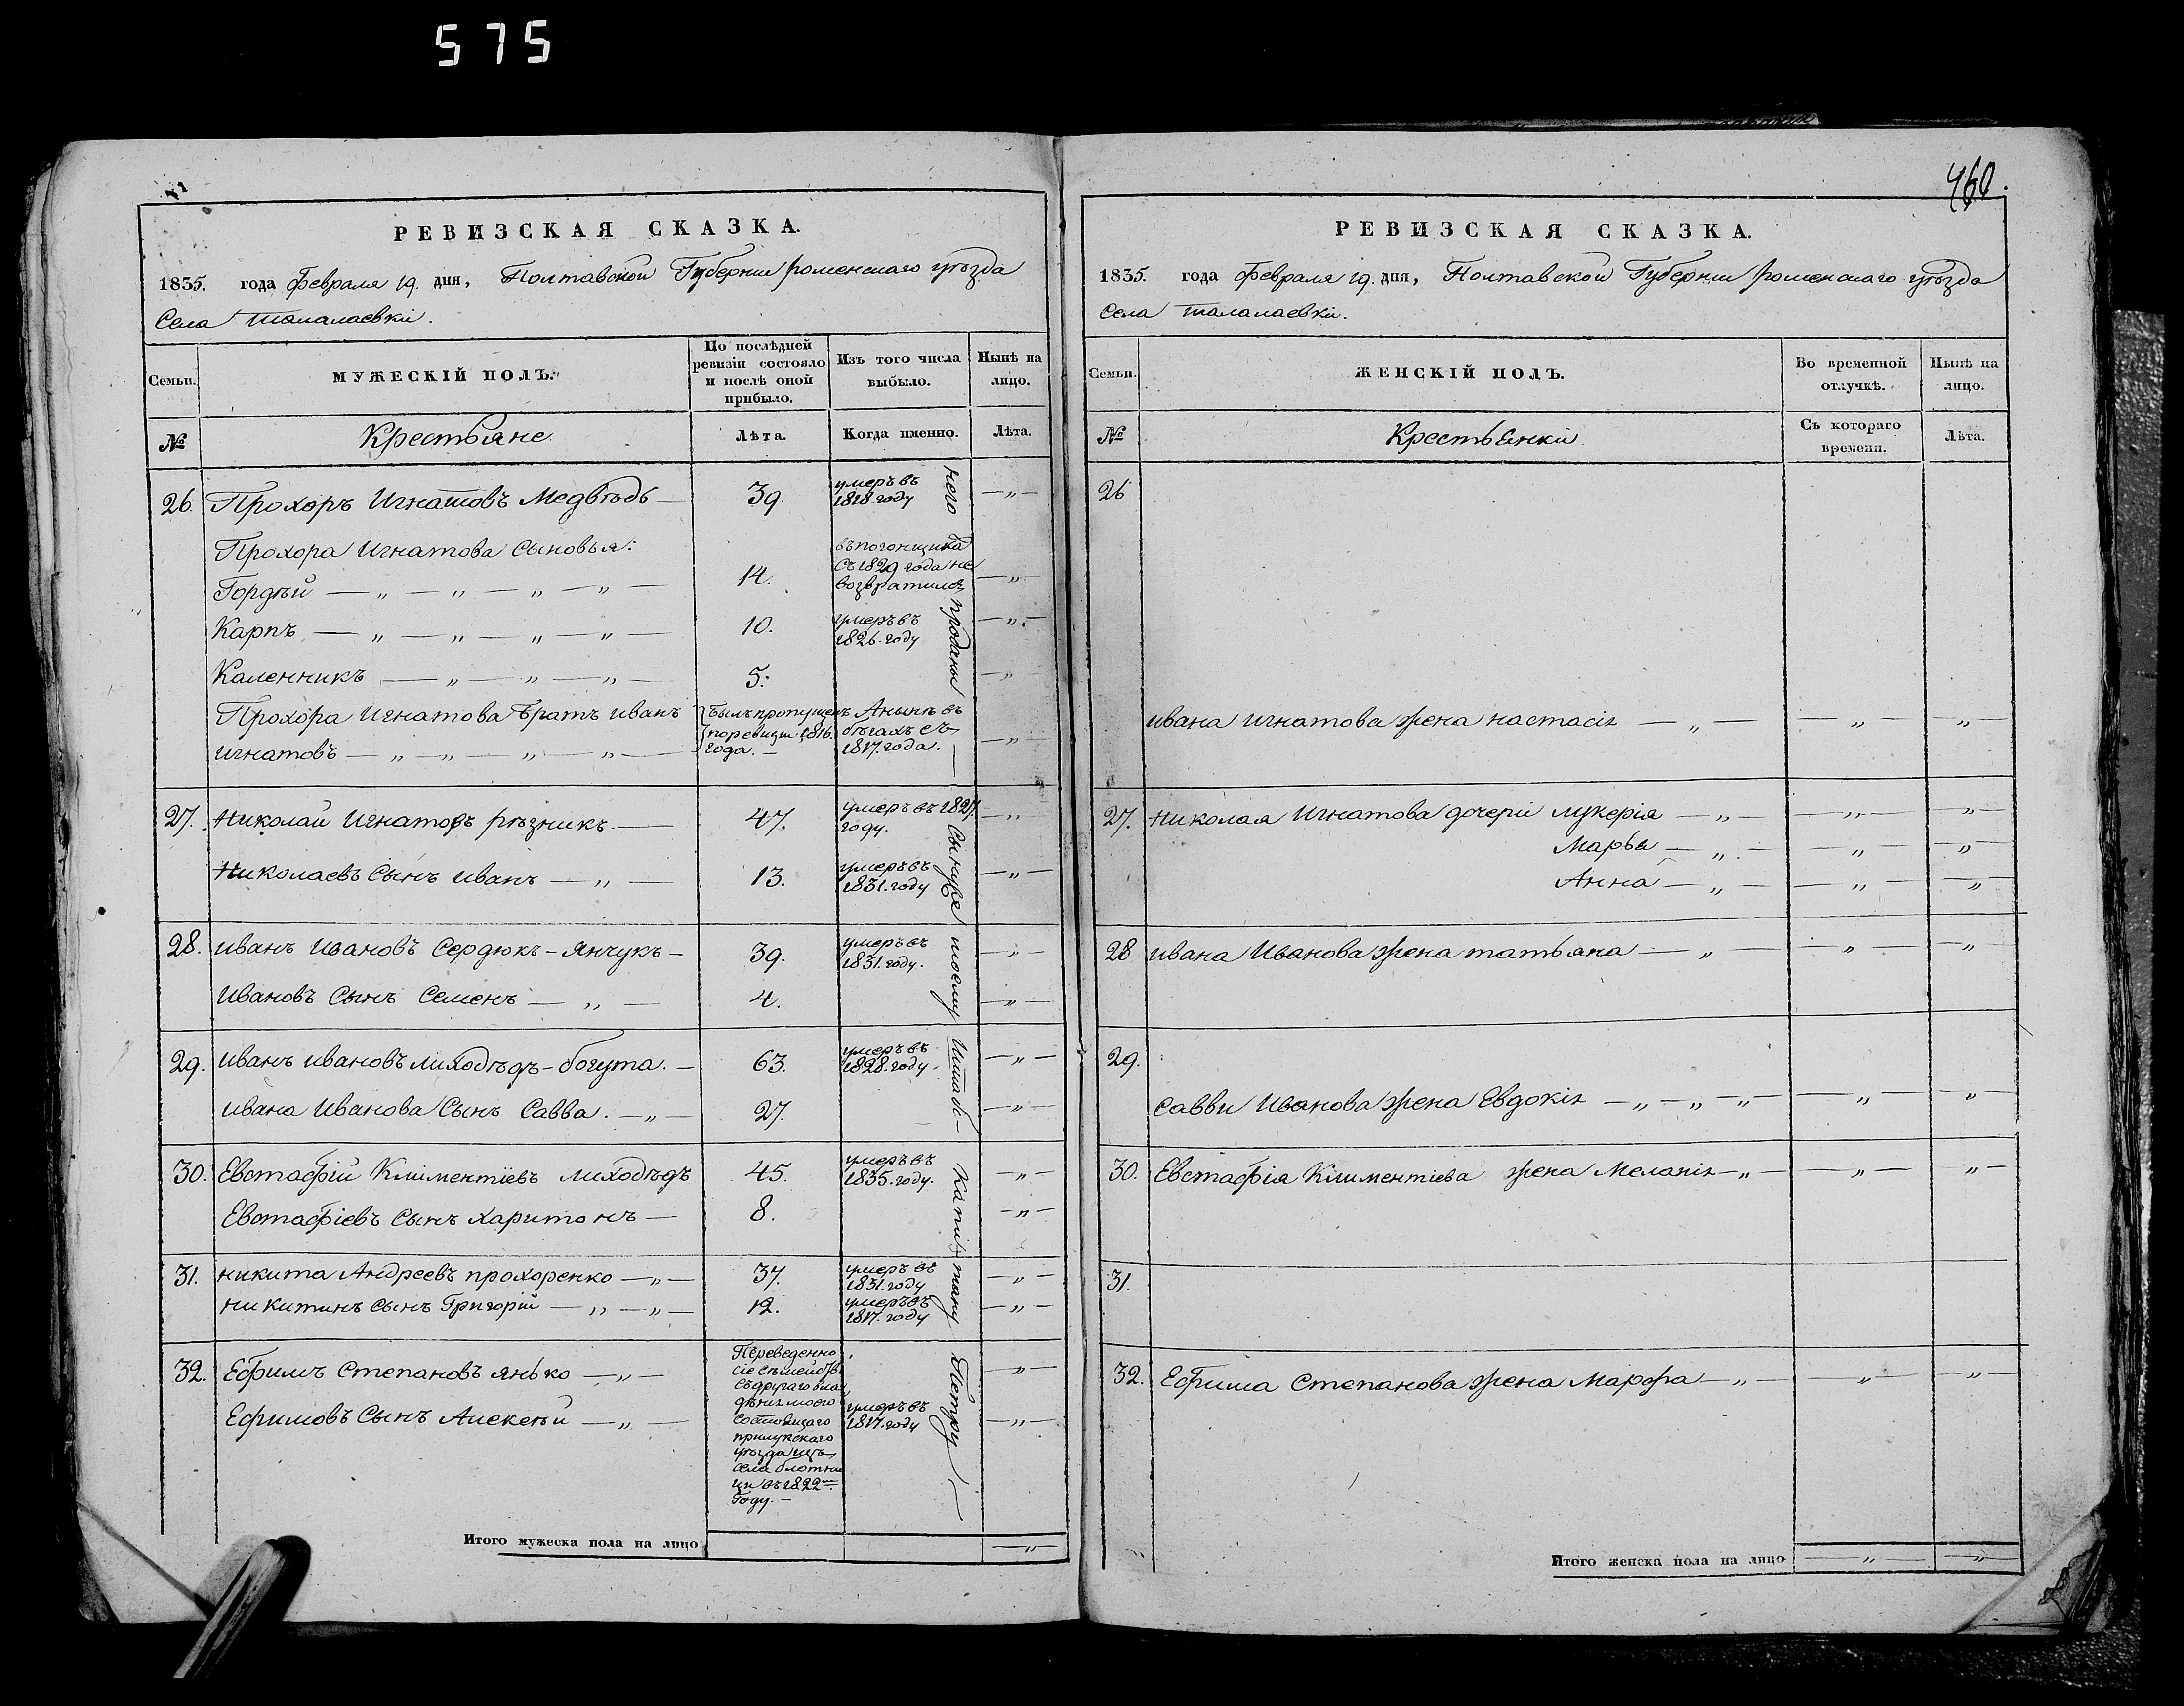 575
РЕВИЗСКАЯ СКАЗКА.
1835. года Февраля 19. дня, Полтавской Губернии роменскаго уѣзда
Села талалаевки.
Семьи.
МУЖЕСКІЙ ПОЛЪ.
По послѣдней ревизіи состояло и послѣ оной прибыло.
Изъ того числа выбыло.
Нынѣ на лицо.
№
Крестьяне
Лѣта.
Когда именно.
Лѣта.
26. Прохоръ Игнатовъ Медвѣдь — 39. умеръ въ 1818 году — „ —
Прохора Игнатова Сыновья:
Гордѣй — „ — „ — „ — „ — 14. въ погонщика съ 1829 года не возвратился — „
Карпъ — „ — „ — „ — „ — 10. умеръ въ 1826. году — „ —
Каленникъ — „ — „ — „ — 5. — „
Прохора Игнатова братъ иванъ
игнатовъ — „ — „ — „ — „ — Былъ пропущенъ по ревизіи 1816. года. — А нынѣ въ бѣгахъ съ 1817. года. — „
27. Николай Игнатовъ рѣзникъ. — 47. умеръ въ 1827. году. — „ —
Николаевъ Сынъ иванъ — „ — 13. умеръ въ 1831. году — „ —
28. иванъ ивановъ Сердюкъ-янчукъ — 39. умеръ въ 1831. году. — „ —
Ивановъ Сынъ Семенъ — „ — 4. — „ —
29. иванъ ивановъ лиходѣдъ-богута. — 63. умеръ въ 1828. году. — „ —
ивана Иванова Сынъ Савва. — „ — 27. — „ —
30. Евстафій Климентіевъ лиходѣдъ 45. умеръ въ 1835. году. — „ —
Евстафіевъ Сынъ харитонъ — 8. — „ —
31. никита Андреевъ прохоренко — „ — 37. умеръ въ 1831. году — „ —
никитинъ Сынъ Григорій — „ — „ — 12. умеръ въ 1817. году — „ —
32. Ефимъ Степановъ янько — „ — „ —
Ефимовъ Сынъ Алексѣй — „ — умеръ въ 1817. году — „ —
Переведенно
сіе семейств.
съ другаго вла
дѣнія моего
состоящаго
прилукскаго
уѣзда изъ
села блотни
ци въ 1822
году. —
него проданы — Сыну же моему Штабъ-Капитану Петру —
Итого мужеска пола на лицо — „ —
460.
РЕВИЗСКАЯ СКАЗКА.
1835. года Февраля 19. дня, Полтавской Губернии роменскаго уѣзда
Села талалаевки.
Семьи.
ЖЕНСКІЙ ПОЛЪ.
Во временной отлучкѣ.
Нынѣ на лицо.
№
Крестьянки
Съ котораго времени.
Лѣта.
26
ивана игнатова жена настасія — „ — — „ — — „ —
27. Николая Игнатова дочери лукерія — „ — — „ — — „ —
Марья — „ — — „ — — „ —
Анна — „ — — „ — — „ —
28 ивана Иванова жена татьяна — „ — „ — — „ —
29.
Савви Иванова жена Евдокія — „ — „ — „ — — „ — — „ —
30. Евстафія Климентіева жена Меланія — „ — — „ — „ —
31.
32. Ефима Степанова жена Марфа — „ — — „ — — „ —
Итого женска пола на лицо — „ — — „ —